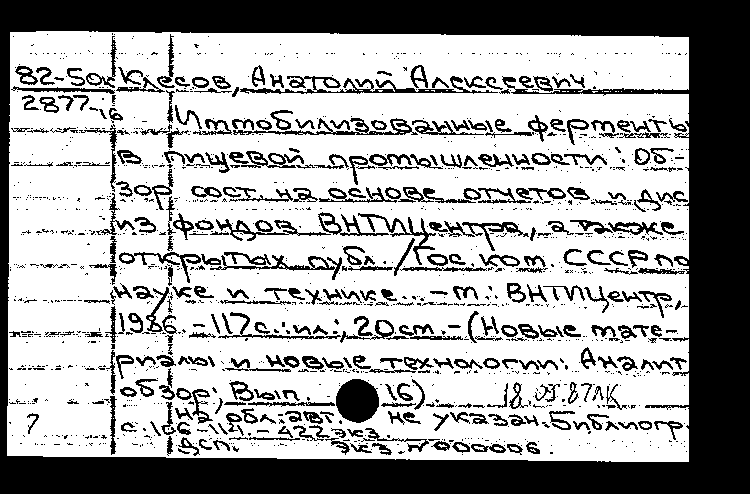 82-5ок Клесов, Анатолий Алексеевич.
2877-16
Иммобилизованные ферменты
в пищевой промышленности: Об-
зор сост. на основе отчетов и дис
из фондов ВНТИЦентра, а также
открытых публ. / Гос. ком. СССР по
науке и технике... - М.: ВНТИЦентр,
1986. - 117 с.: ил.; 20 см. - (Новые мате-
риалы и новые технологии: Аналит
обзор; Вып. 16). 18.09.87 ЛК
На обл. авт. не указан. Библиогр.
7 с. 106-114. - 422 экз.
ДСП. Экз. N 000006.